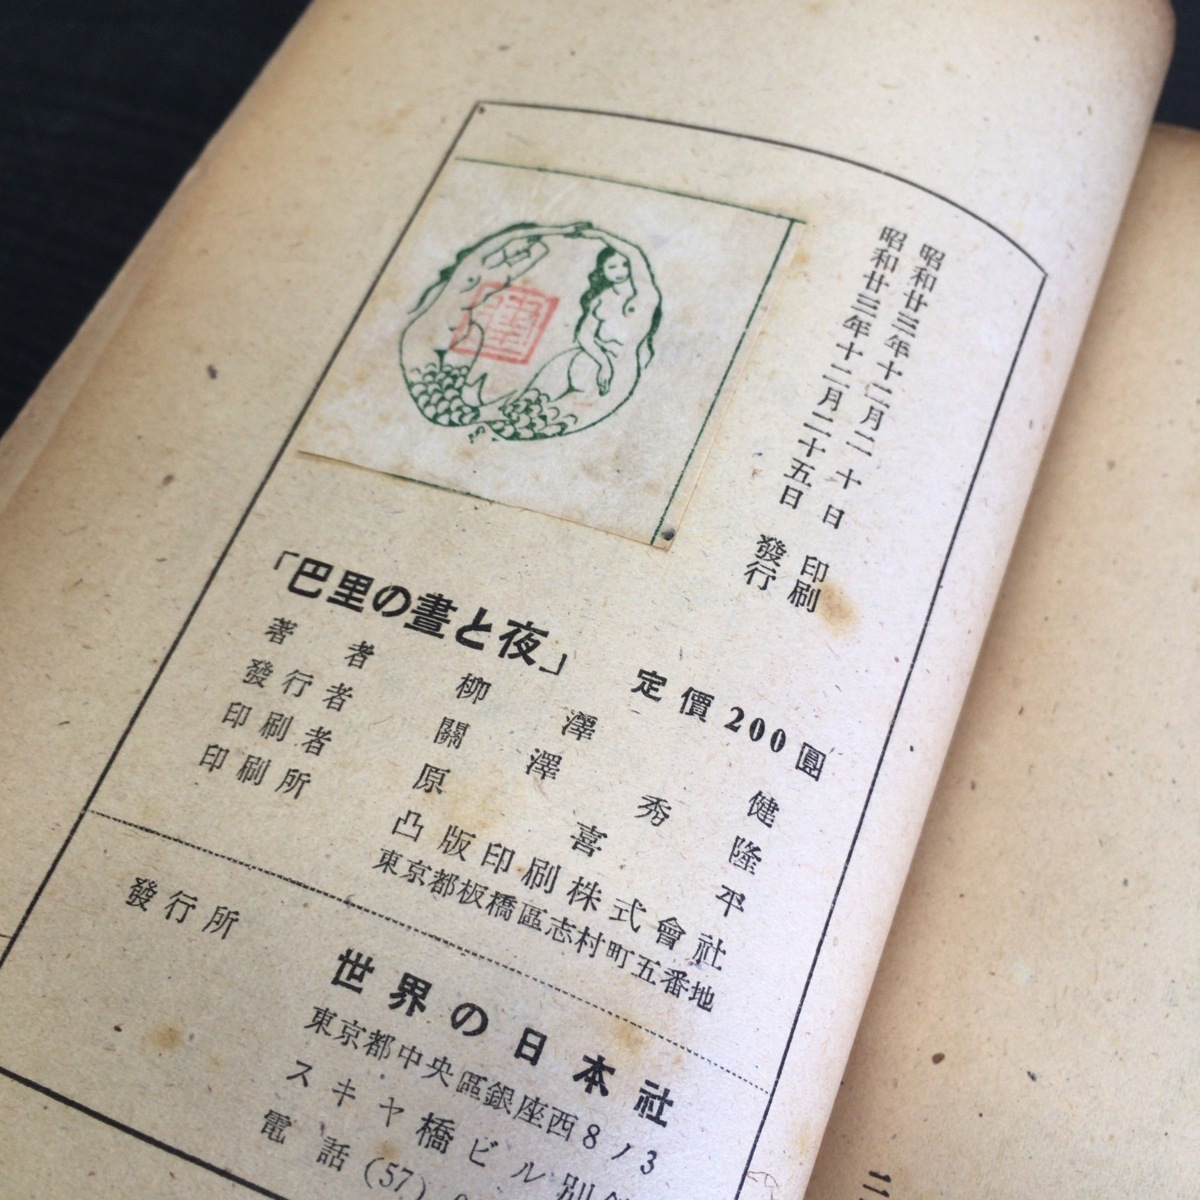 昭和廿三年十二月二十日 印刷
昭和廿三年十二月二十五日 發行
「巴里の晝と夜」 定價200圓
著者 柳澤健
發行者 關澤秀隆
印刷者 原喜平
印刷所 凸版印刷株式會社
東京都板橋區志村町五番地
發行所 世界の日本社
東京都中央區銀座西8ノ3
スキヤ橋ビル別
電話(57)